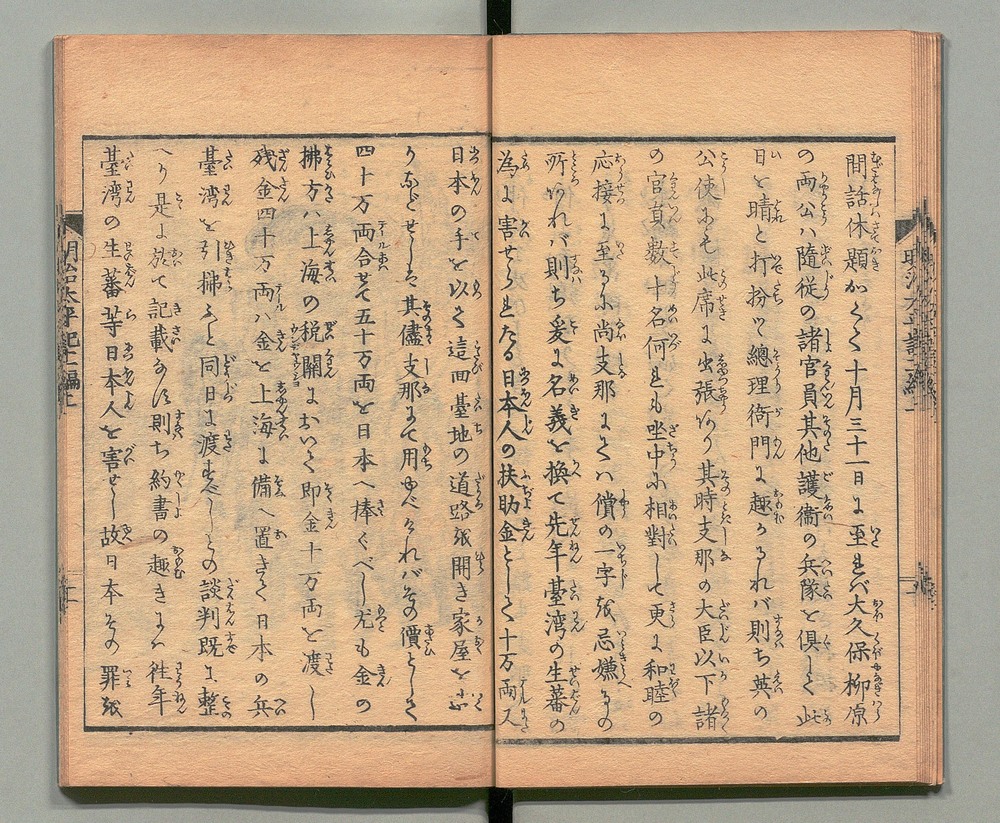 間話休題かくて十月三十一日に至れバ大久保柳原
の両公ハ隨従の諸官員其他護衞の兵隊と倶して此
日を晴と打扮て總理衙門に趣かるれバ則ち英の
公使あも此席に出張あり其時支那の大臣以下諸
の官員數十名何れも坐中に相對して更に和睦の
応接に至るに尚支那にてハ償の一字を忌嫌ふの
所あれバ則ち爰に名義を換て先年臺湾の生蕃の
為に害せられたる日本人の扶助金として十万両又
日本の手を以て這回臺地の道路を開き家屋を
りなどせしを其儘支那にて用ゆべけれバその價として
四十万両合せて五十万両を日本へ捧ぐべし尤も金の
拂方ハ上海の税關において即金十万両を渡し
残金四十万両ハ金を上海に備へ置きて日本の兵
臺湾を引拂ふと同日に渡すべしとの談判既に整
へり是に於て記載なす則ち約書の趣きにハ往年
臺湾の生蕃等日本人を害せし故日本その罪を
明治太平記十一編上
十一